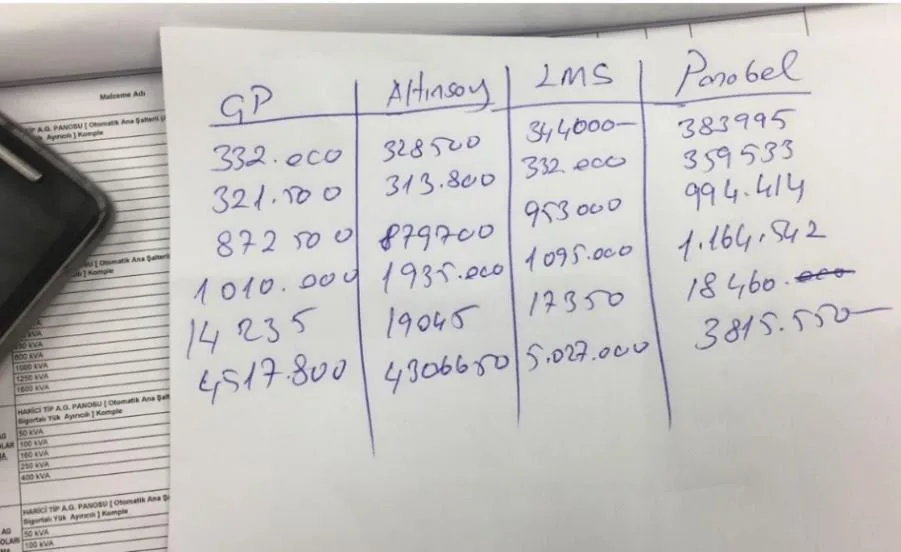 Malzeme Adı
TİP A.G. PANOSU [ Otomatik Ana Şalterli
Ayırıcılı ] Komple
GP Altınsoy LMS Panobel
332.000 328500 344000- 383995
321.500 313.800 332.000 359533
872500 879700 953000 994.414
1010.000 1935.000 1095.000 1.164.542
14235 19045 17350 18460.000
4517.800 4306650 5.027.000 3815.550-
PANOSU [ Otomatik Ana Şalterli
] Komple
800 kVA
1000 kVA
1250 kVA
1600 kVA
HARİCİ TİP A.G. PANOSU [ Otomatik Ana Şalt
Sigortalı Yük Ayırıcılı ] Komple
50 kVA
100 kVA
160 kVA
250 kVA
400 kVA
AG
OLAR
MA
HARİCİ TİP A.G. PANOSU [ Otomatik Ana
Sigortalı Yük Ayırıcılı ] Komple
50 kVA
100 kVA
AG
OLARI
MA